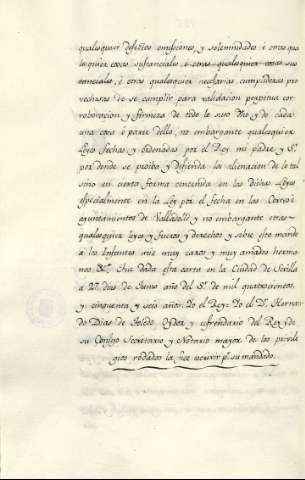 qualesquier defectos omisiones, y solemnidades i otras qua
lesquier cosas sustanciales i otras qualesquier cosas sus
tanciales, i otras qualesquier necesarias cumplideras pro
vechosas de se cumplir para validacion perpetua cor
roboracion y firmeza de todo lo suso dho y de cada
una cosa i parte dello, no embargante qualesquier
Leyes fechas y ordenadas por el Rey mi padre y Sr.
por donde se proibe y defiende la alienacion de lo tal
sino en cierta forma contenida en las dichas Leyes
especialmente en la Ley por el fecha en las Cortes i
ayuntamientos de Valladolid y no embargante otras
qualesquier leyes y fueros y derechos y sobre esto mando
a los Infantes mis muy caros y muy amados herma
nos &c. fue dada esta carta en la Ciudad de Sevilla
a 20 dias de Junio año del Sr. de mil quatrocientos
y cinquenta y seis años. Yo el Rey. Yo el Dr. Hernan
do Diaz de Toledo Oydor y refrendario del Rey de
su Consejo Secretario y Notario mayor de los previle
gios rodados la fice escrivir pr. su mandado.